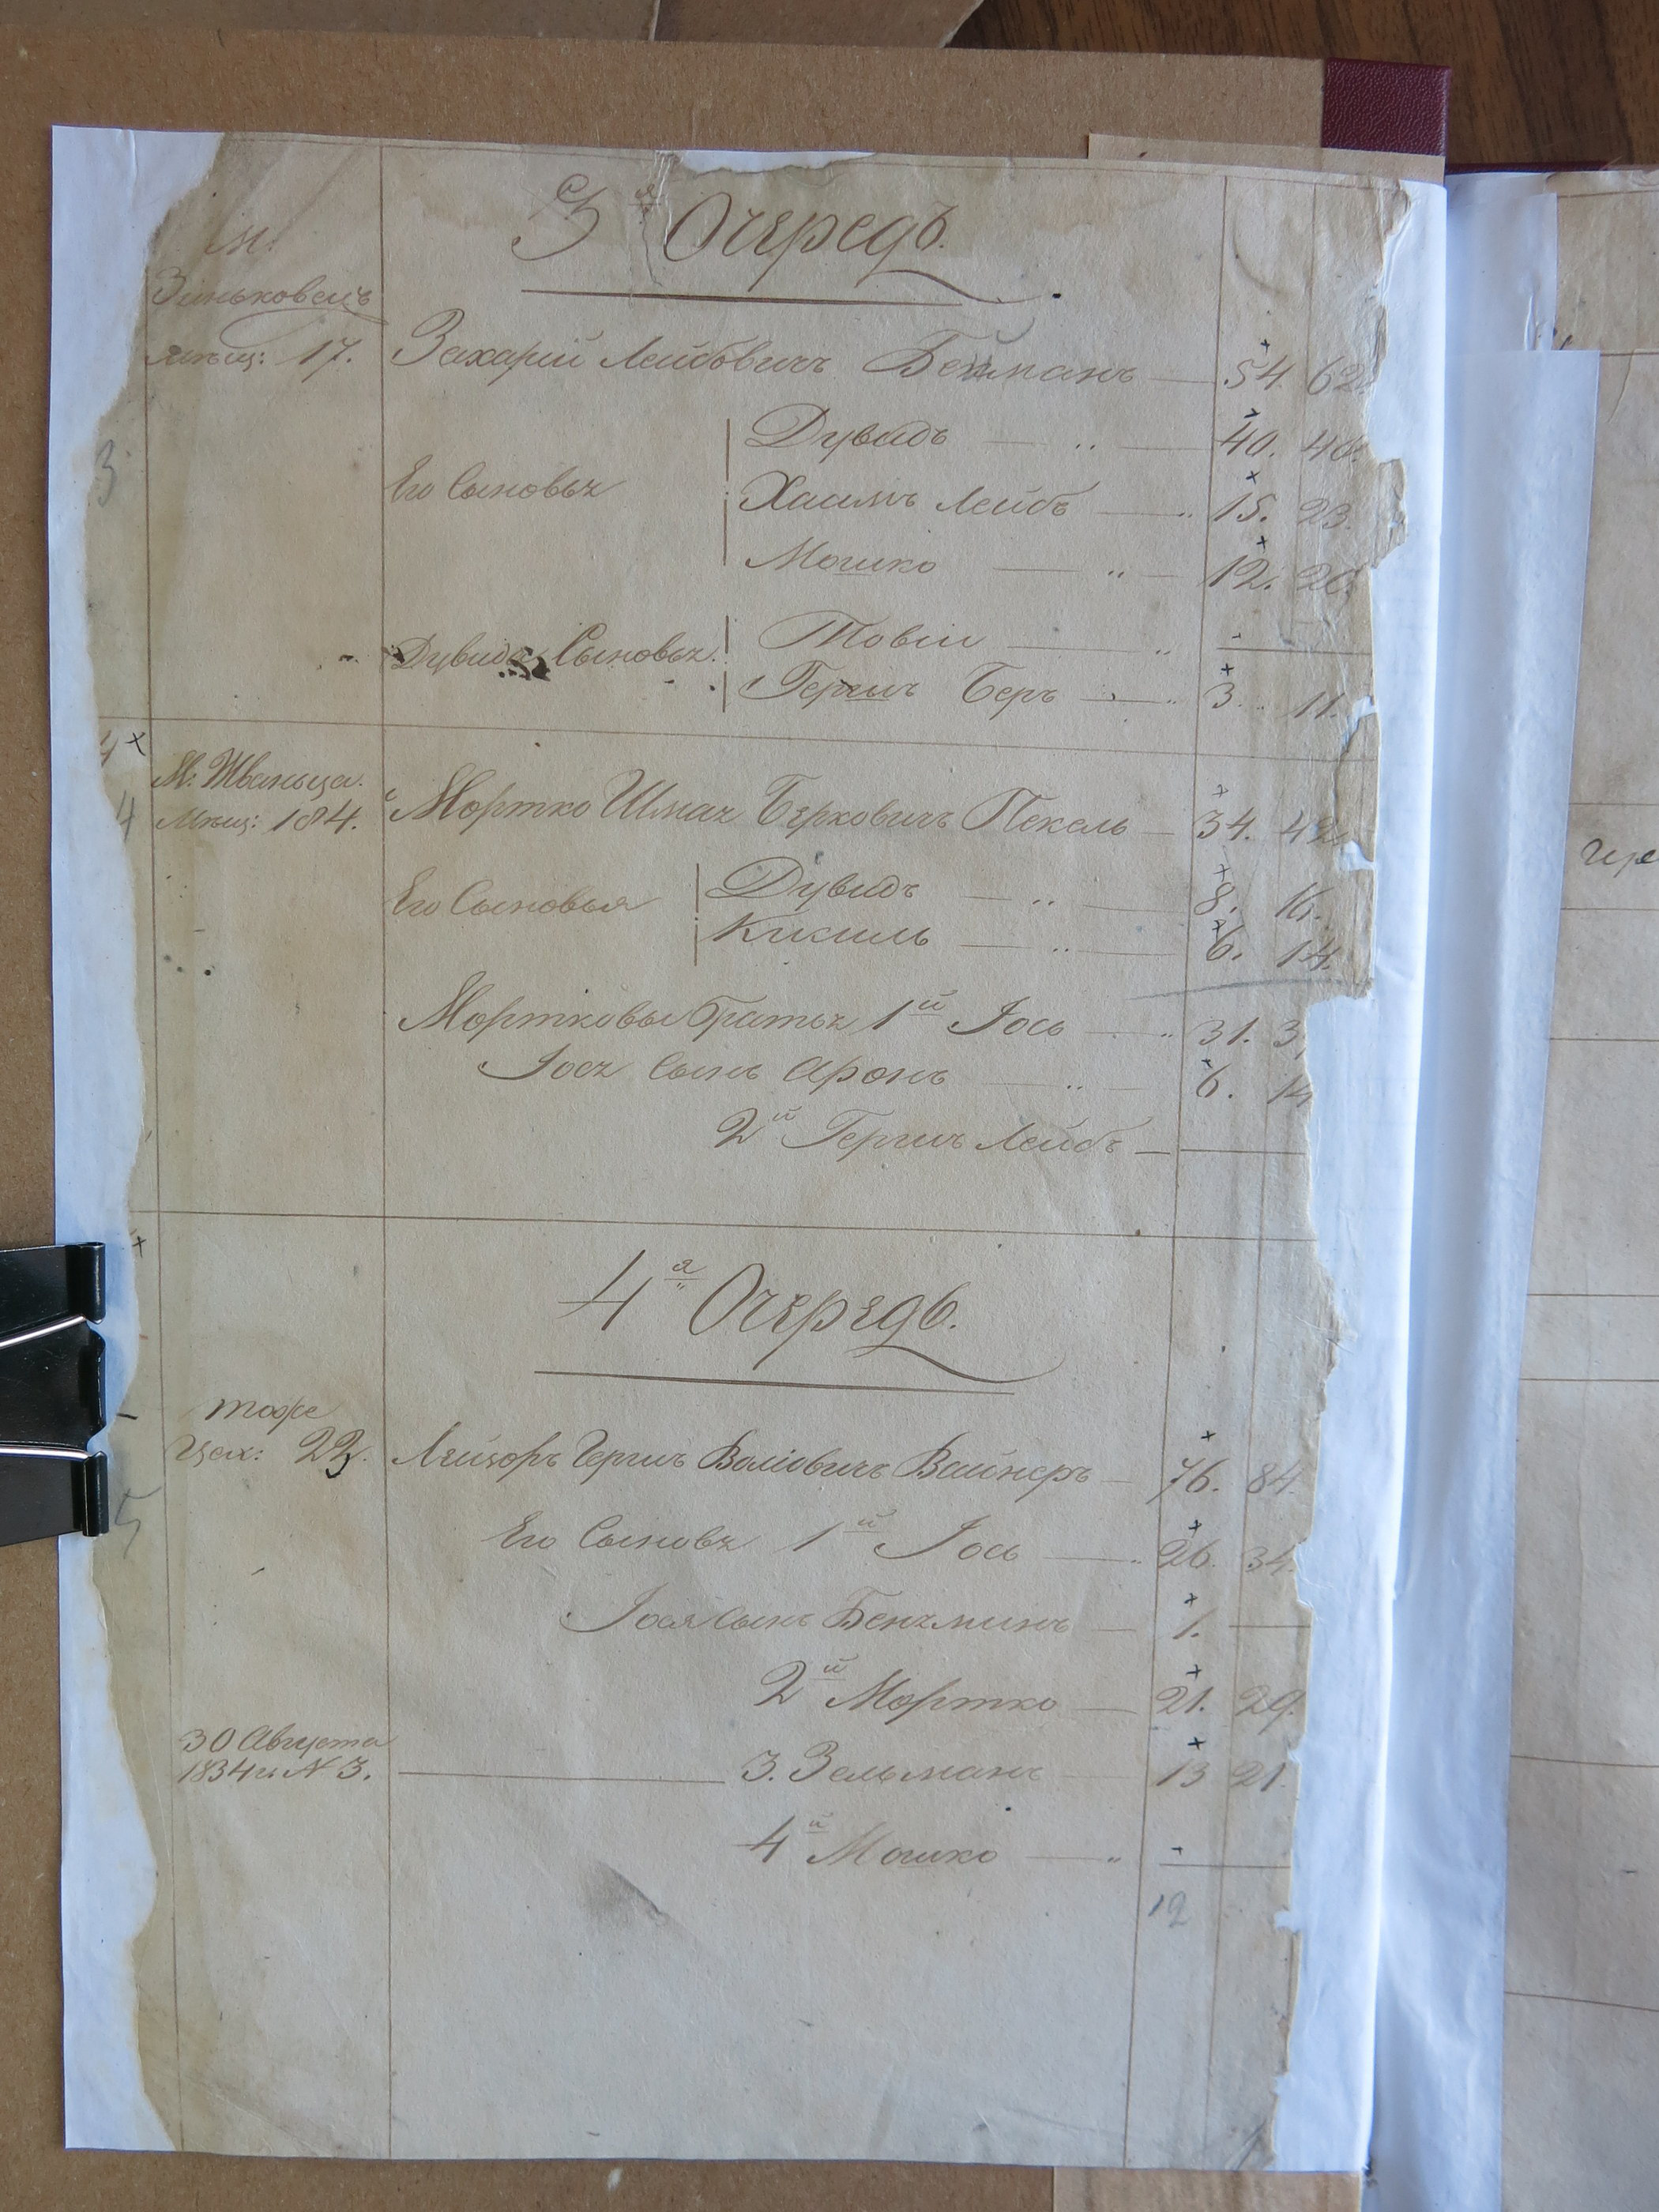 3я Очередь.
м.
Зиньковецъ
мѣщ: 17. Захарій Лейбовичъ Бейманъ — 54. 62
Дувидъ — „ — 40. 40.
3 Его Сыновья Хаимъ Лейбъ — „ 15. 23.
Мошко — „ — 12. 20.
Товіи — „ -
Дувида Сыновья.
Гершъ Беръ — „ 3. „ 11.
4
М: Жванца.
4 Мѣщ: 184. Мортко Шмая Берковичъ Пекель — 34. 42
Дувидъ — „ — 8. 16.
Его Сыновья
Кисиль — „ — 6. 14.
Мортковы братья 1й Іось — „ 31. 3
Іося сынъ Аронъ — „ — 6. 14
2й Гершъ Лейбъ —
4я Очередь.
тоже
Цех: 23. Лейзоръ Гершъ Воліовичъ Вайнеръ — 76. 84.
5 Его Сыновья 1й Іось — „ 26. 34.
Іося сынъ Беняминъ — 1. —
2й Мортко — 21. 29.
30 Августа
1834 г. N 3. — 3. Зельманъ — 13 21.
4й Мошко — „ -
12